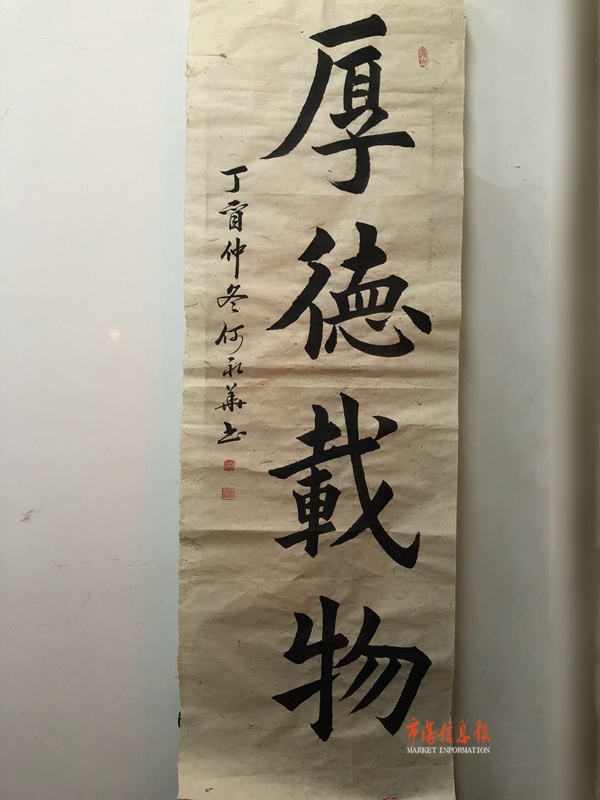 厚德載物
丁酉仲冬何永華书
市場信息報
MARKET INFORMATION